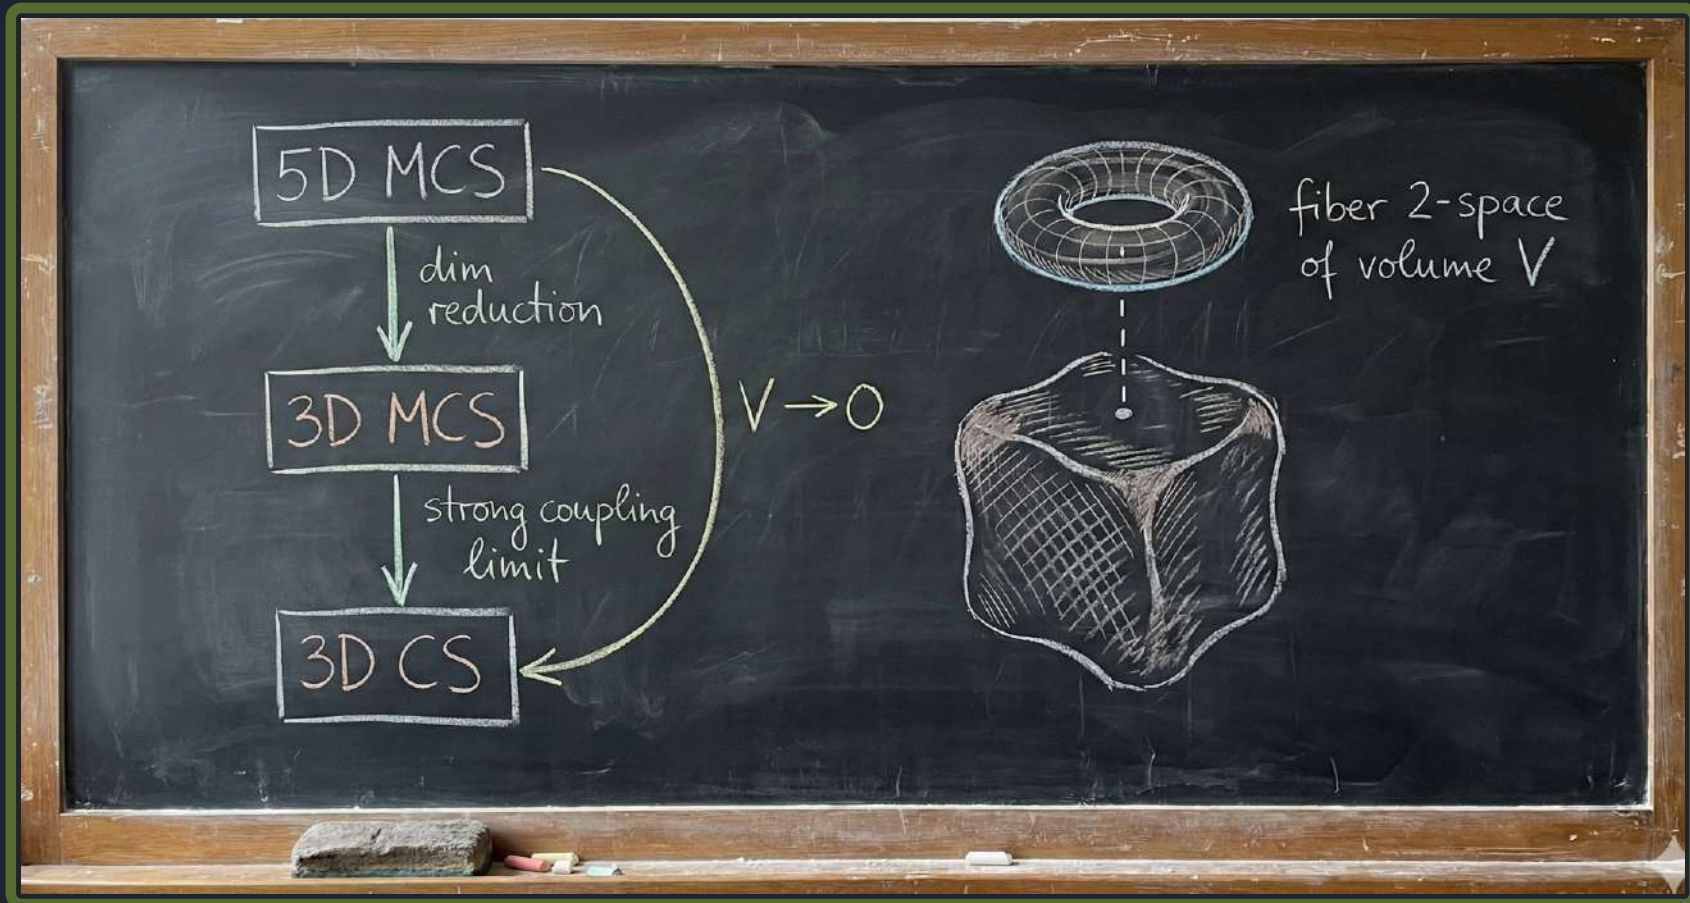 5D MCS
dim
reduction
3D MCS
strong coupling
limit
3D CS
V → 0
fiber 2-space
of volume V